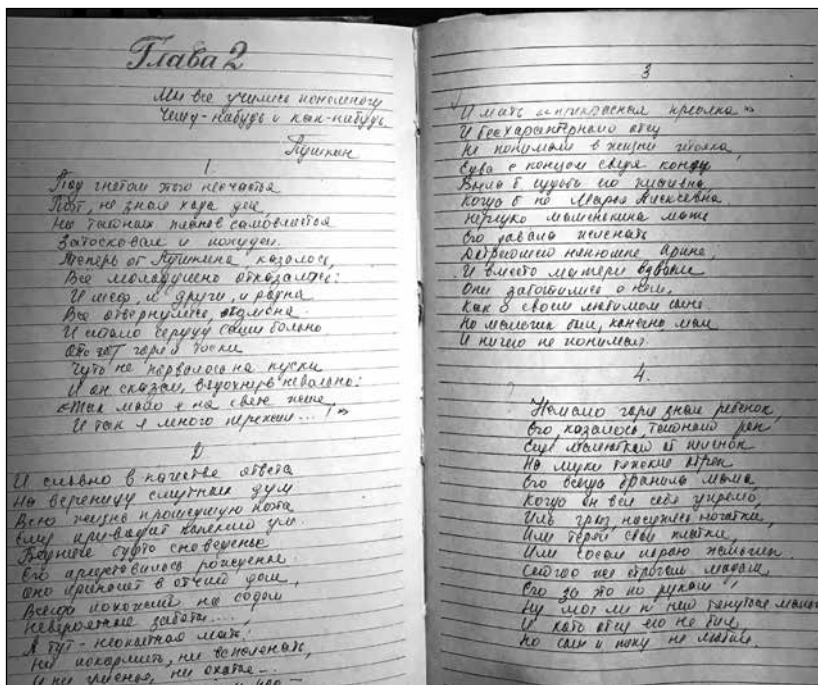 Глава 2
Мы все учились понемногу
Чему-нибудь и как-нибудь
Пушкин
1.
Под гнетом этого несчастья
Поэт, не зная хода дел,
На тайных планов самовластья
Затосковал и похудел.
Теперь от Пушкина, казалось,
Все малодушно отказались:
И шеф, и други, и родня
Все отвернулись,
И стало сердцу Саши больно
Оно от горя и тоски
Чуть не порвалось на куски
И он сказал, вздохнув невольно:
«Так мало я на свете жил,
И так я много пережил...!»
2
И словно в качестве ответа
На вереницу смутных дум
Всю жизнь прошедшую поэта
Ему приводит ум.
будто сновиденье
Его представилось рожденье.
Оно приносит в отчий дом,
Всегда похожий на содом
Невероятные заботы...,
А тут - неопытная мать:
Ни покормить, ни
И ни, ни
3
И мать «прекрасная креолка»
И бесхарактерному отцу
Не понимали в жизни толка,
Едва с концом сводя концы
Была б судьба его плачевна,
Когда б не Марья Алексевна.
маменькина мать
Его давала
нянюшке Арине;
И вместо матери вдвоем
Они заботились о нем,
Как о своем любимом сыне.
Но мальчик был, конечно, мал
И ничего не понимал.
4.
Немало горя знал ребенок,
Его, казалось, тайный рок
Еще малюткой от пеленок
На муки тяжкие обрек
Его всегда бранила мама,
Когда он вел себя упрямо,
Иль грыз, ногатки,
Или терял свои платки,
Или сосал порою
же строгая мадам
Его за то по рукам,
Ну мог ли к ней тянуться
И хоть отец его не бил,
Но сын и папу не любил.